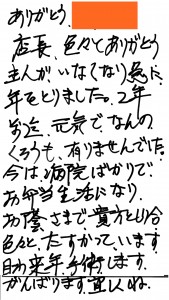 ありがとう
店長、色々とありがとう
主人がいなくなり急に
年をとりました。2年
前迄、元気でなんの
くろうも、有りませんでした
今は、病院ばかりで
お弁当生活になり
お陰さまで、貴方と
色々と、たすかっています
来年、手術します。
がんばります。